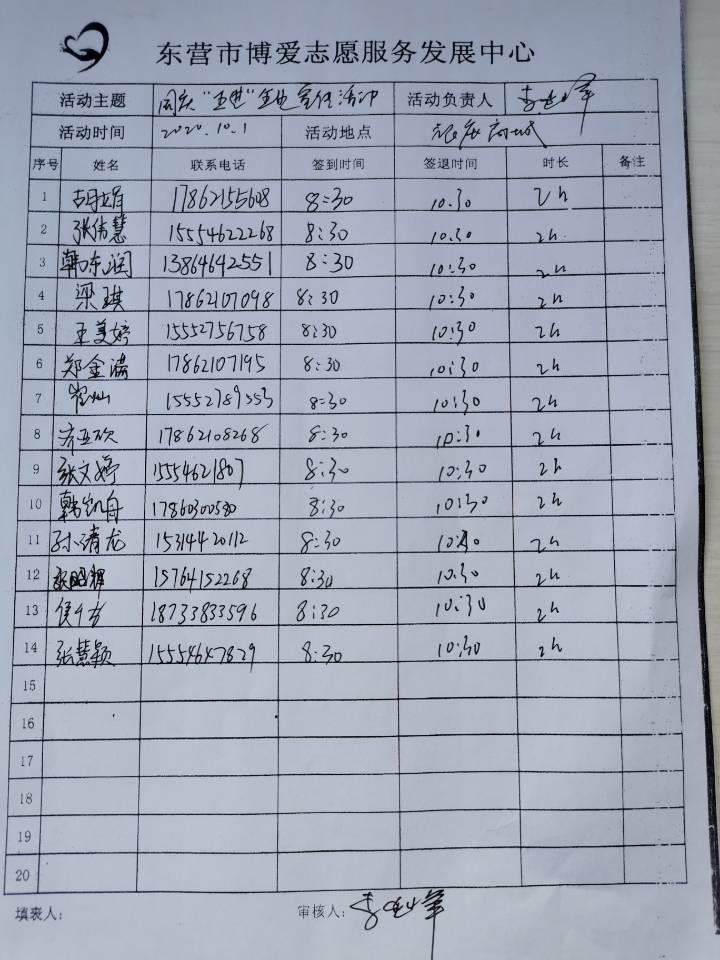 东营市博爱志愿服务发展中心
活动主题 国庆"五进"宣传活动 活动负责人 李
活动时间 2020.10.1 活动地点 商城
序号 姓名 联系电话 签到时间 签退时间 时长 备注
1 胡娟 17862155608 8:30 10:30 2h
2 张伟慧 15554622268 8:30 10:30 2h
3 韩东润 13864642551 8:30 10:30 2h
4 梁琪 17862107098 8:30 10:30 2h
5 王美婷 15552756758 8:30 10:30 2h
6 郑金满 17862107195 8:30 10:30 2h
7 崔灿 15552789553 8:30 10:30 2h
8 齐亚欣 17862108268 8:30 10:30 2h
9 张文婷 1554621807 8:30 10:30 2h
10 韩凯舟 17860300580 8:30 10:30 2h
11 孙清龙 15314420112 8:30 10:30 2h
12 昭辉 15764152268 8:30 10:30 2h
13 侯 18733833596 8:30 10:30 2h
14 张慧颖 15554647829 8:30 10:30 2h
15
16
17
18
19
20
填表人： 审核人：李